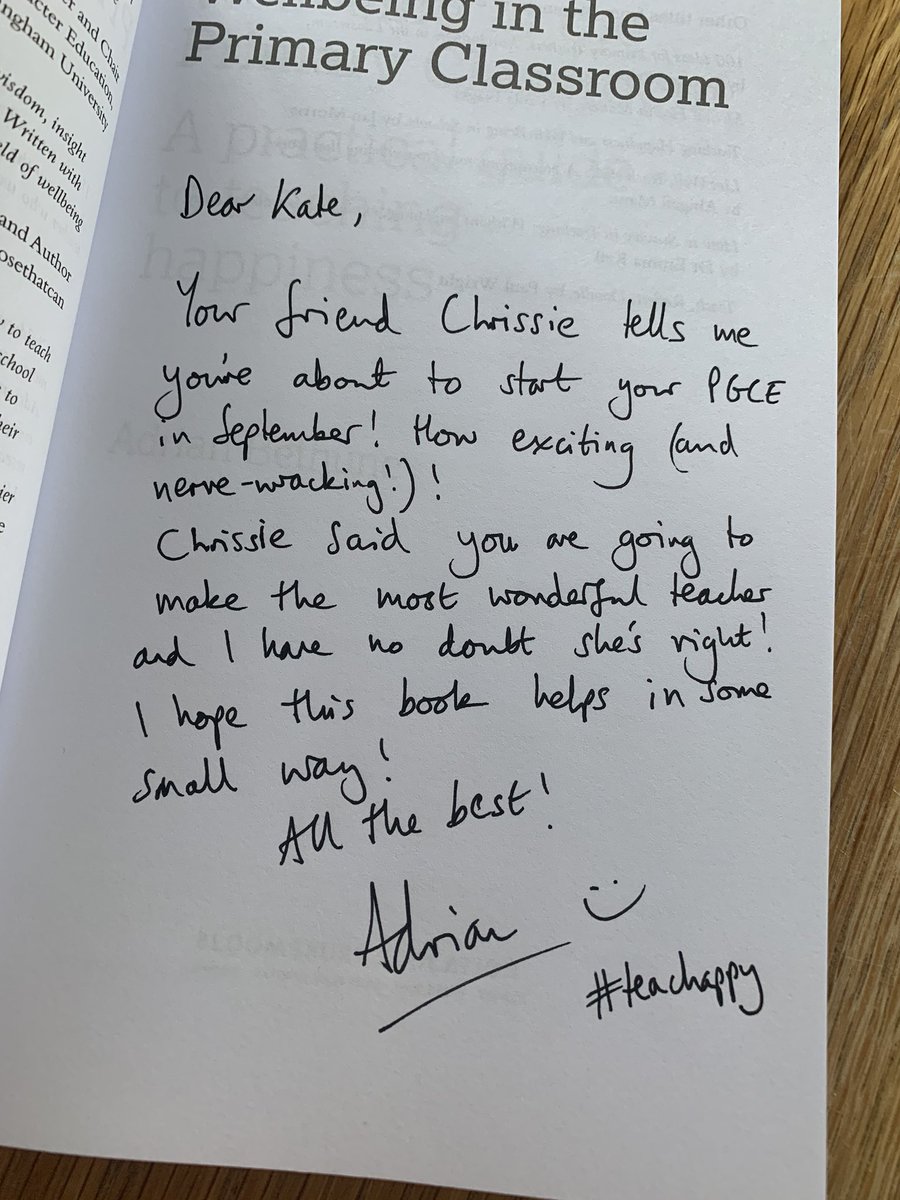 Wellbeing in the
Primary Classroom
Dear Kate,
Your friend Chrissie tells me
you're about to start your PGCE
in September! How exciting (and
nerve-wracking!)!
Chrissie said you are going to
make the most wonderful teacher
and I have no doubt she's right!
I hope this book helps in some
small way!
All the best!
Adrian
#teachappy
er and Chair
acter Education,
ngham University
isdom, insight
Written with
ld of wellbeing
and Author
osethatcan
to teach
school
to
heir
ier
A practical
to teaching
happiness